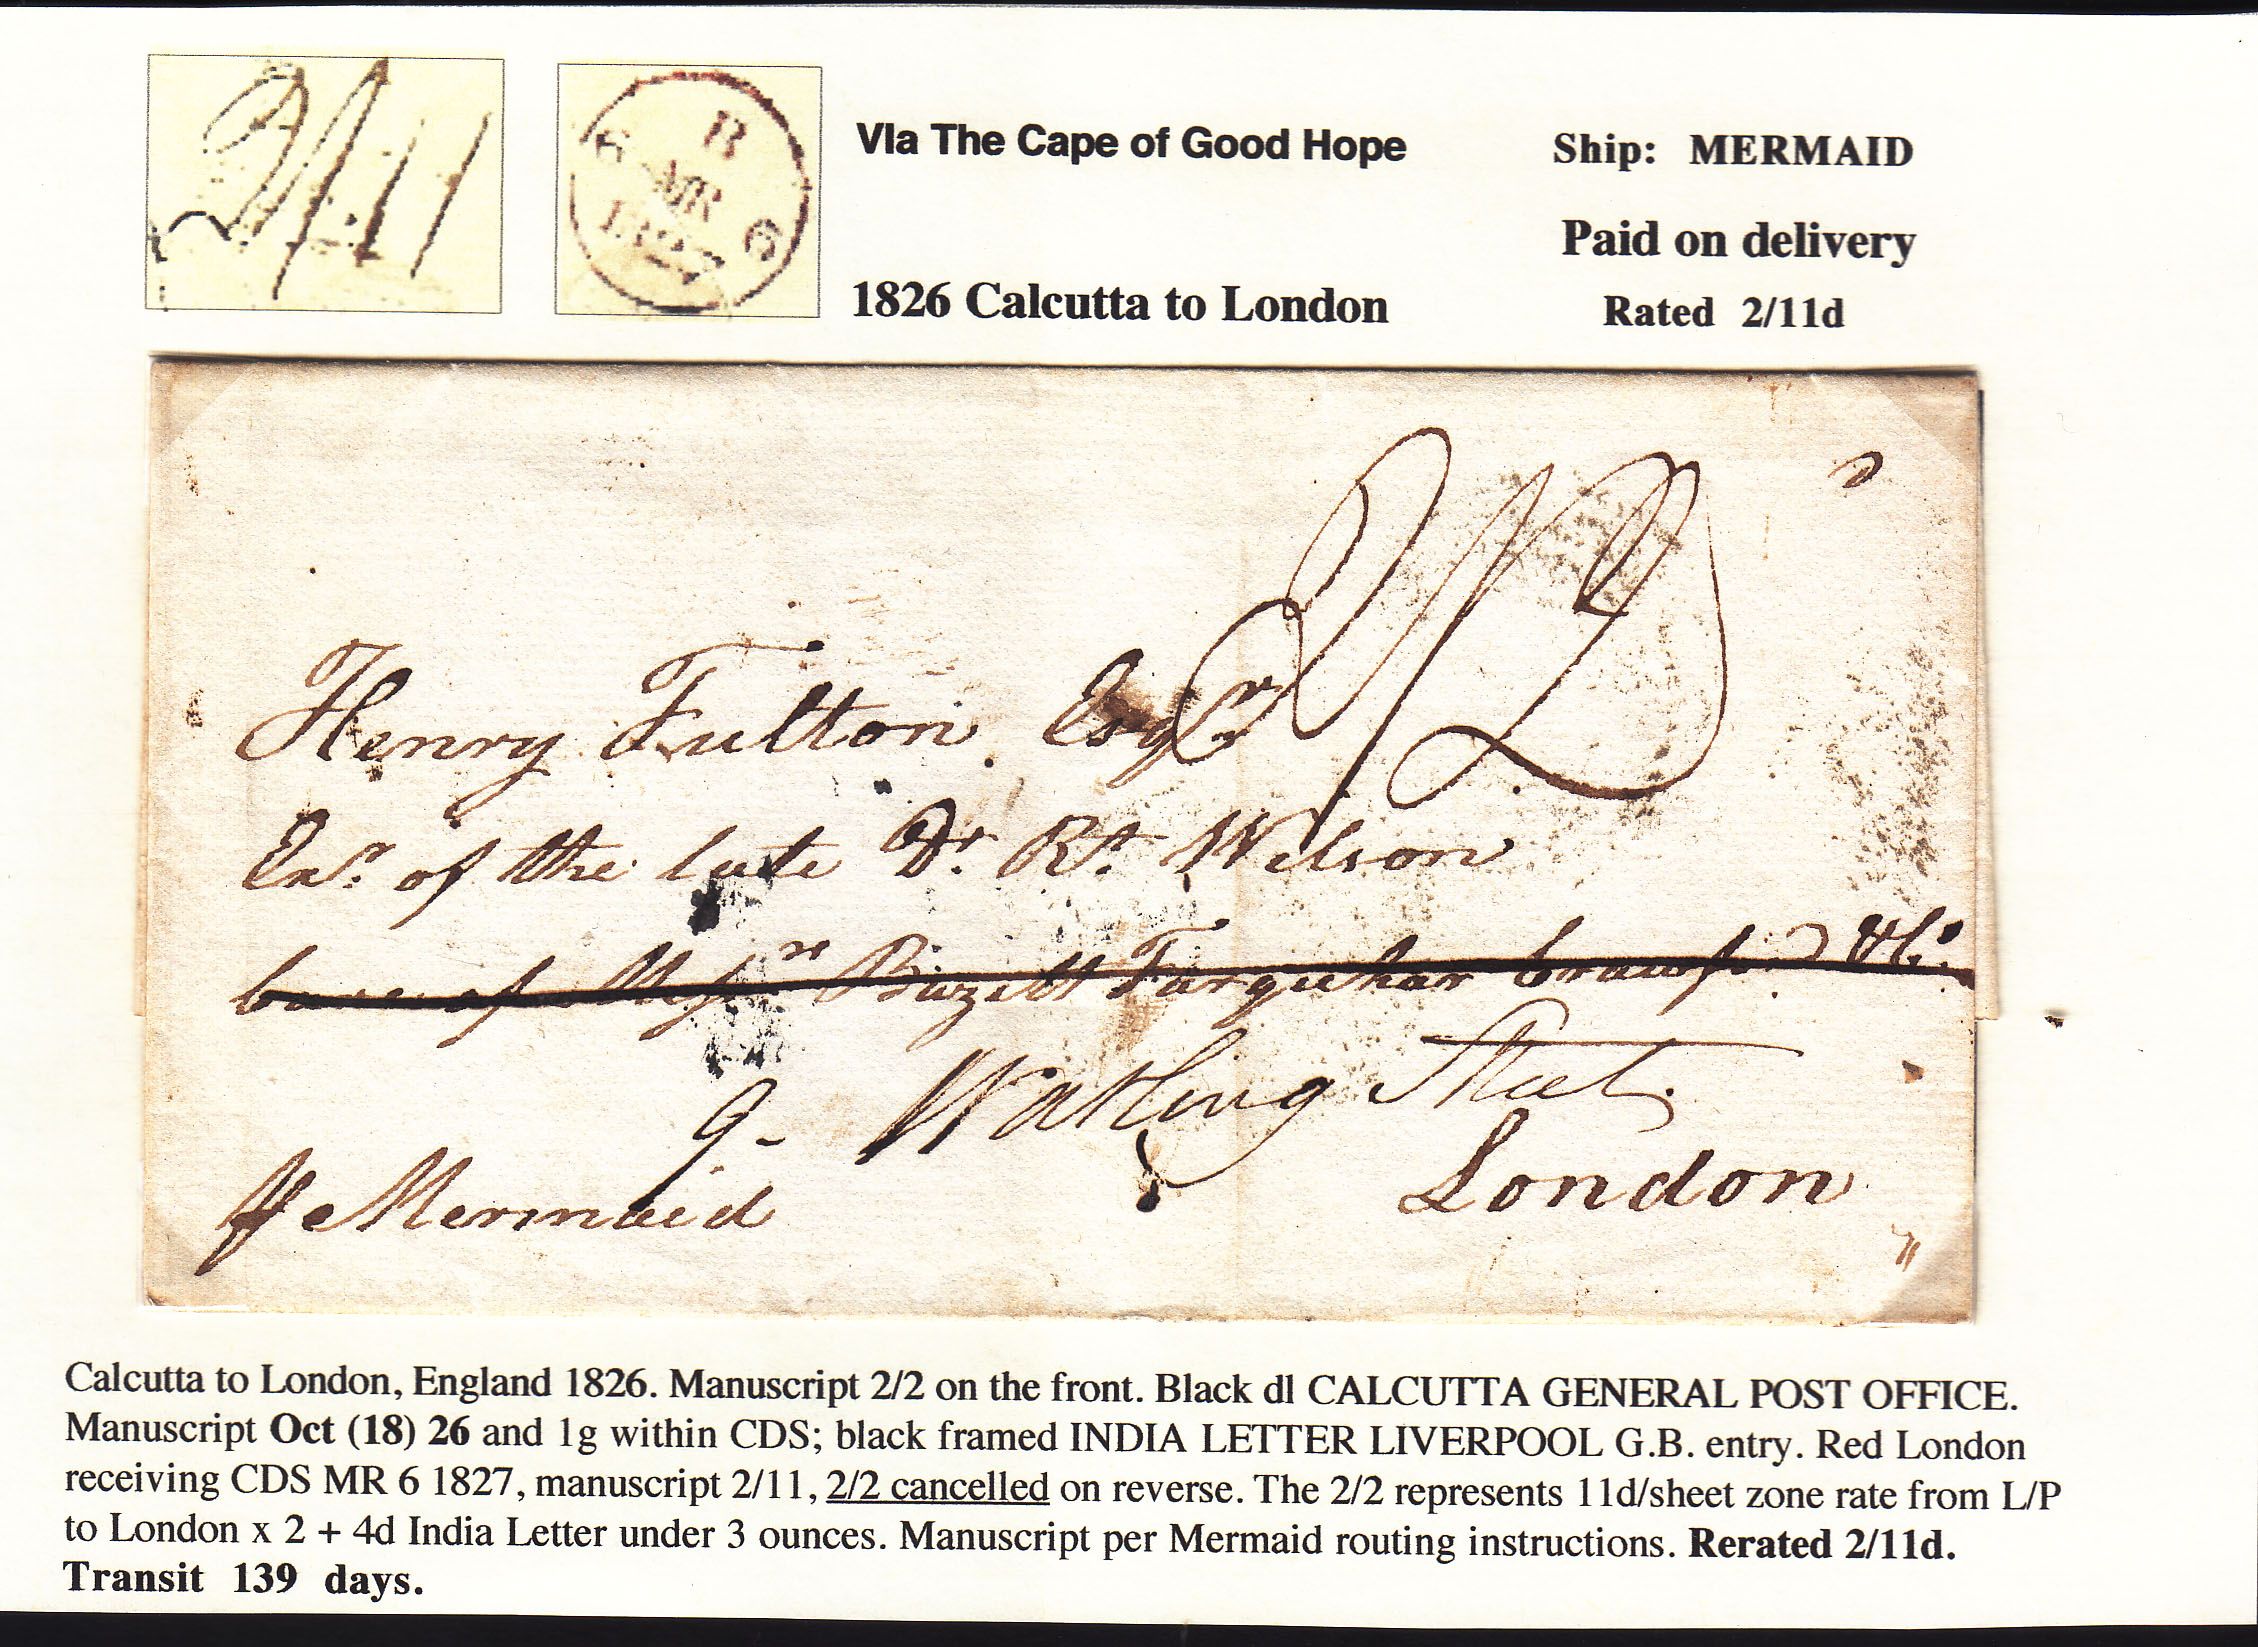 2/11
R
6 MR 6
1827
VIa The Cape of Good Hope
1826 Calcutta to London
Ship: MERMAID
Paid on delivery
Rated 2/11d
2/2
Henry Fulton Esqr
Exr. of the late Dr. Rt. Wilson
Care of Messrs Bazett Farquhar Crawford & Co.
9- Watling Street.
London
Pr Mermaid
Calcutta to London, England 1826. Manuscript 2/2 on the front. Black dl CALCUTTA GENERAL POST OFFICE.
Manuscript Oct (18) 26 and 1g within CDS; black framed INDIA LETTER LIVERPOOL G.B. entry. Red London
receiving CDS MR 6 1827, manuscript 2/11, 2/2 cancelled on reverse. The 2/2 represents 11d/sheet zone rate from L/P
to London x 2 + 4d India Letter under 3 ounces. Manuscript per Mermaid routing instructions. Rerated 2/11d.
Transit 139 days.